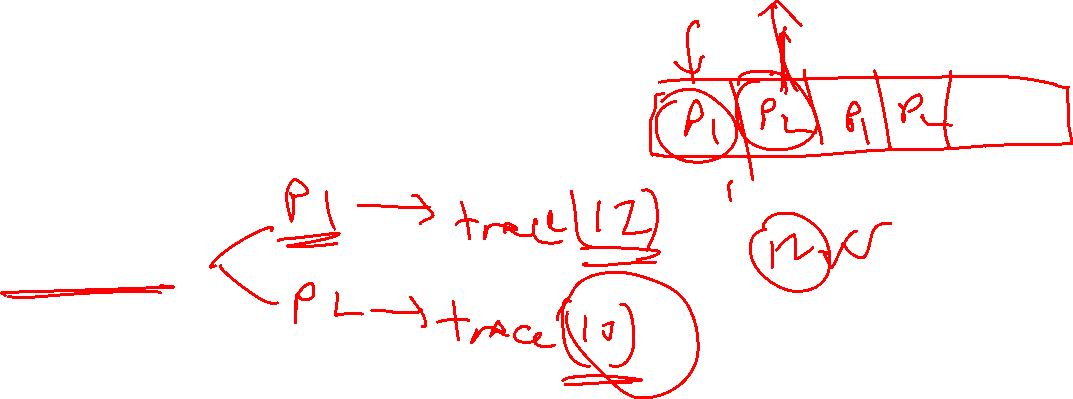 P1 P2 P1 P2
P1 → trace(12)
12
P2 → trace(10)